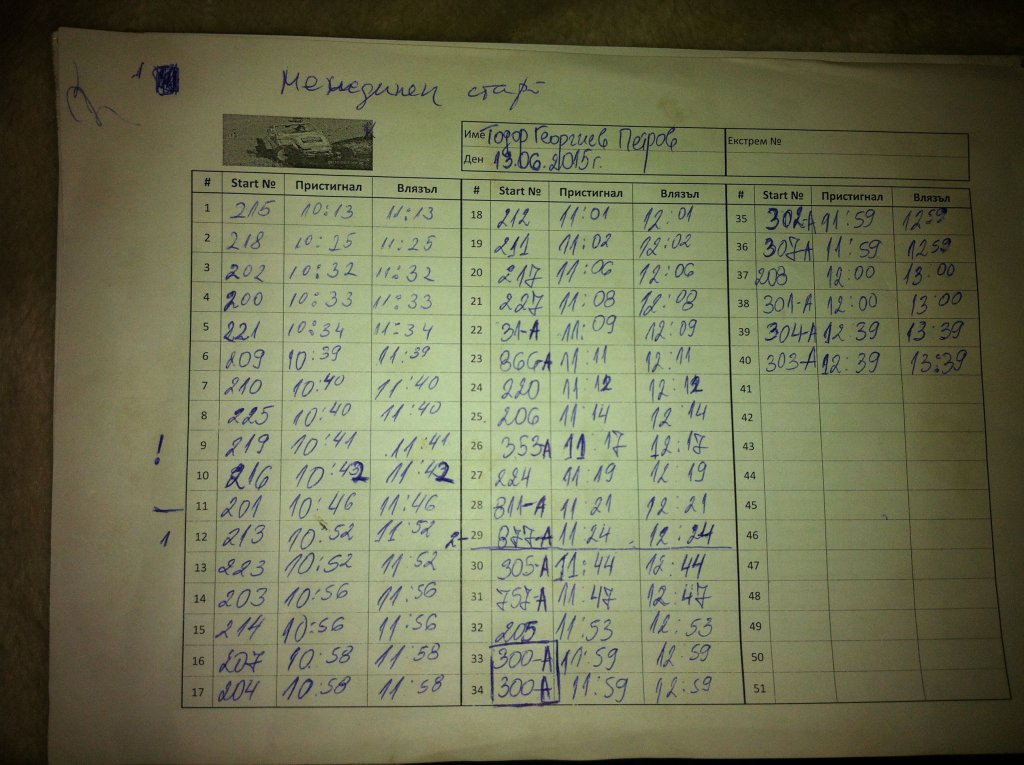 1
Междинен старт
Име Тодор Георгиев Петров
Ден 13.06.2015г.
Екстрем №
# Start № Пристигнал Влязъл
1 215 10:13 11:13
2 218 10:25 11:25
3 202 10:32 11:32
4 200 10:33 11:33
5 221 10:34 11:34
6 209 10:39 11:39
7 210 10:40 11:40
8 225 10:40 11:40
! 9 219 10:41 11:41
10 216 10:42 11:42
11 201 10:46 11:46
1 12 213 10:52 11:52
13 223 10:52 11:52
14 203 10:56 11:56
15 214 10:56 11:56
16 207 10:58 11:58
17 204 10:58 11:58
# Start № Пристигнал Влязъл
18 212 11:01 12:01
19 211 11:02 12:02
20 217 11:06 12:06
21 227 11:08 12:08
22 31-A 11:09 12:09
23 866-A 11:11 12:11
24 220 11:12 12:12
25 206 11:14 12:14
26 353A 11:17 12:17
27 224 11:19 12:19
28 811-A 11:21 12:21
2 29 877-A 11:24 12:24
30 305-A 11:44 12:44
31 757-A 11:47 12:47
32 205 11:53 12:53
33 300-A 11:59 12:59
34 300-A 11:59 12:59
# Start № Пристигнал Влязъл
35 302-A 11:59 12:59
36 307-A 11:59 12:59
37 208 12:00 13:00
38 301-A 12:00 13:00
39 304-A 12 39 13:39
40 303-A 12:39 13:39
41
42
43
44
45
46
47
48
49
50
51